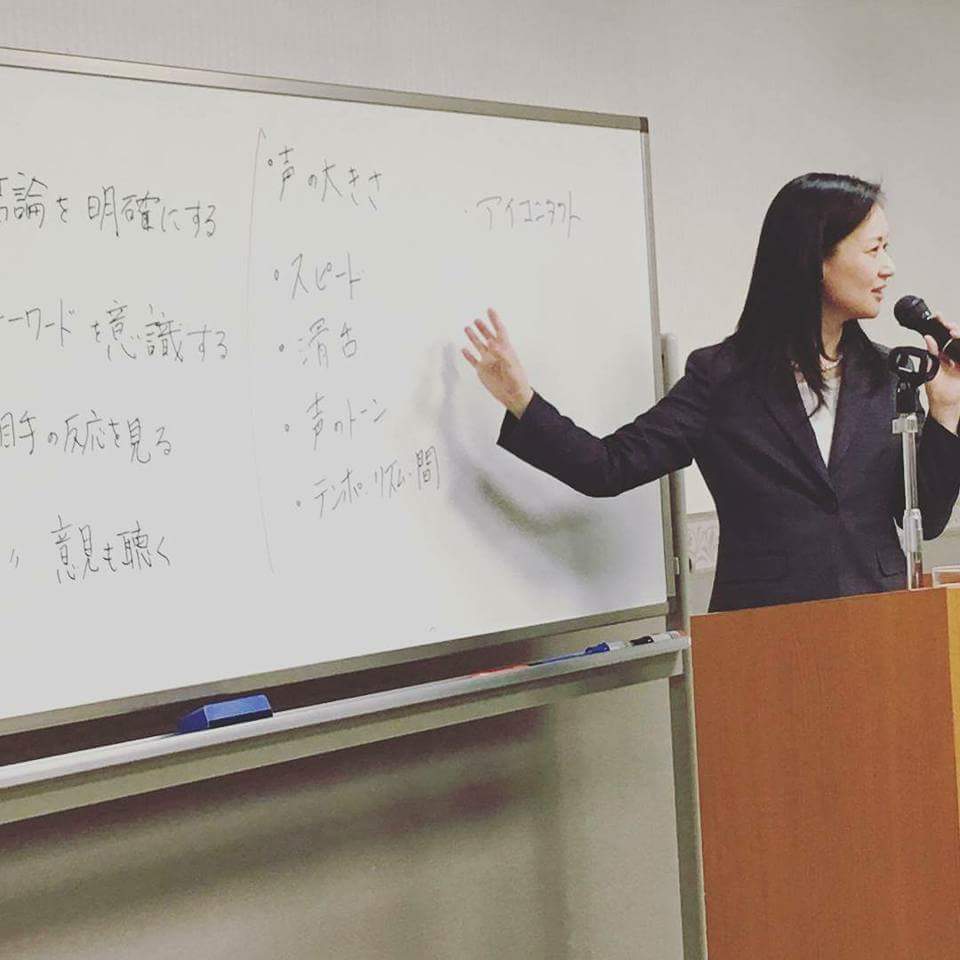 論を明確にする
ーワードを意識する
相手の反応を見る
〃 意見も聴く
・声の大きさ
・スピード
・滑舌
・声のトーン
・テンポ・リズム・間
・アイコンタクト